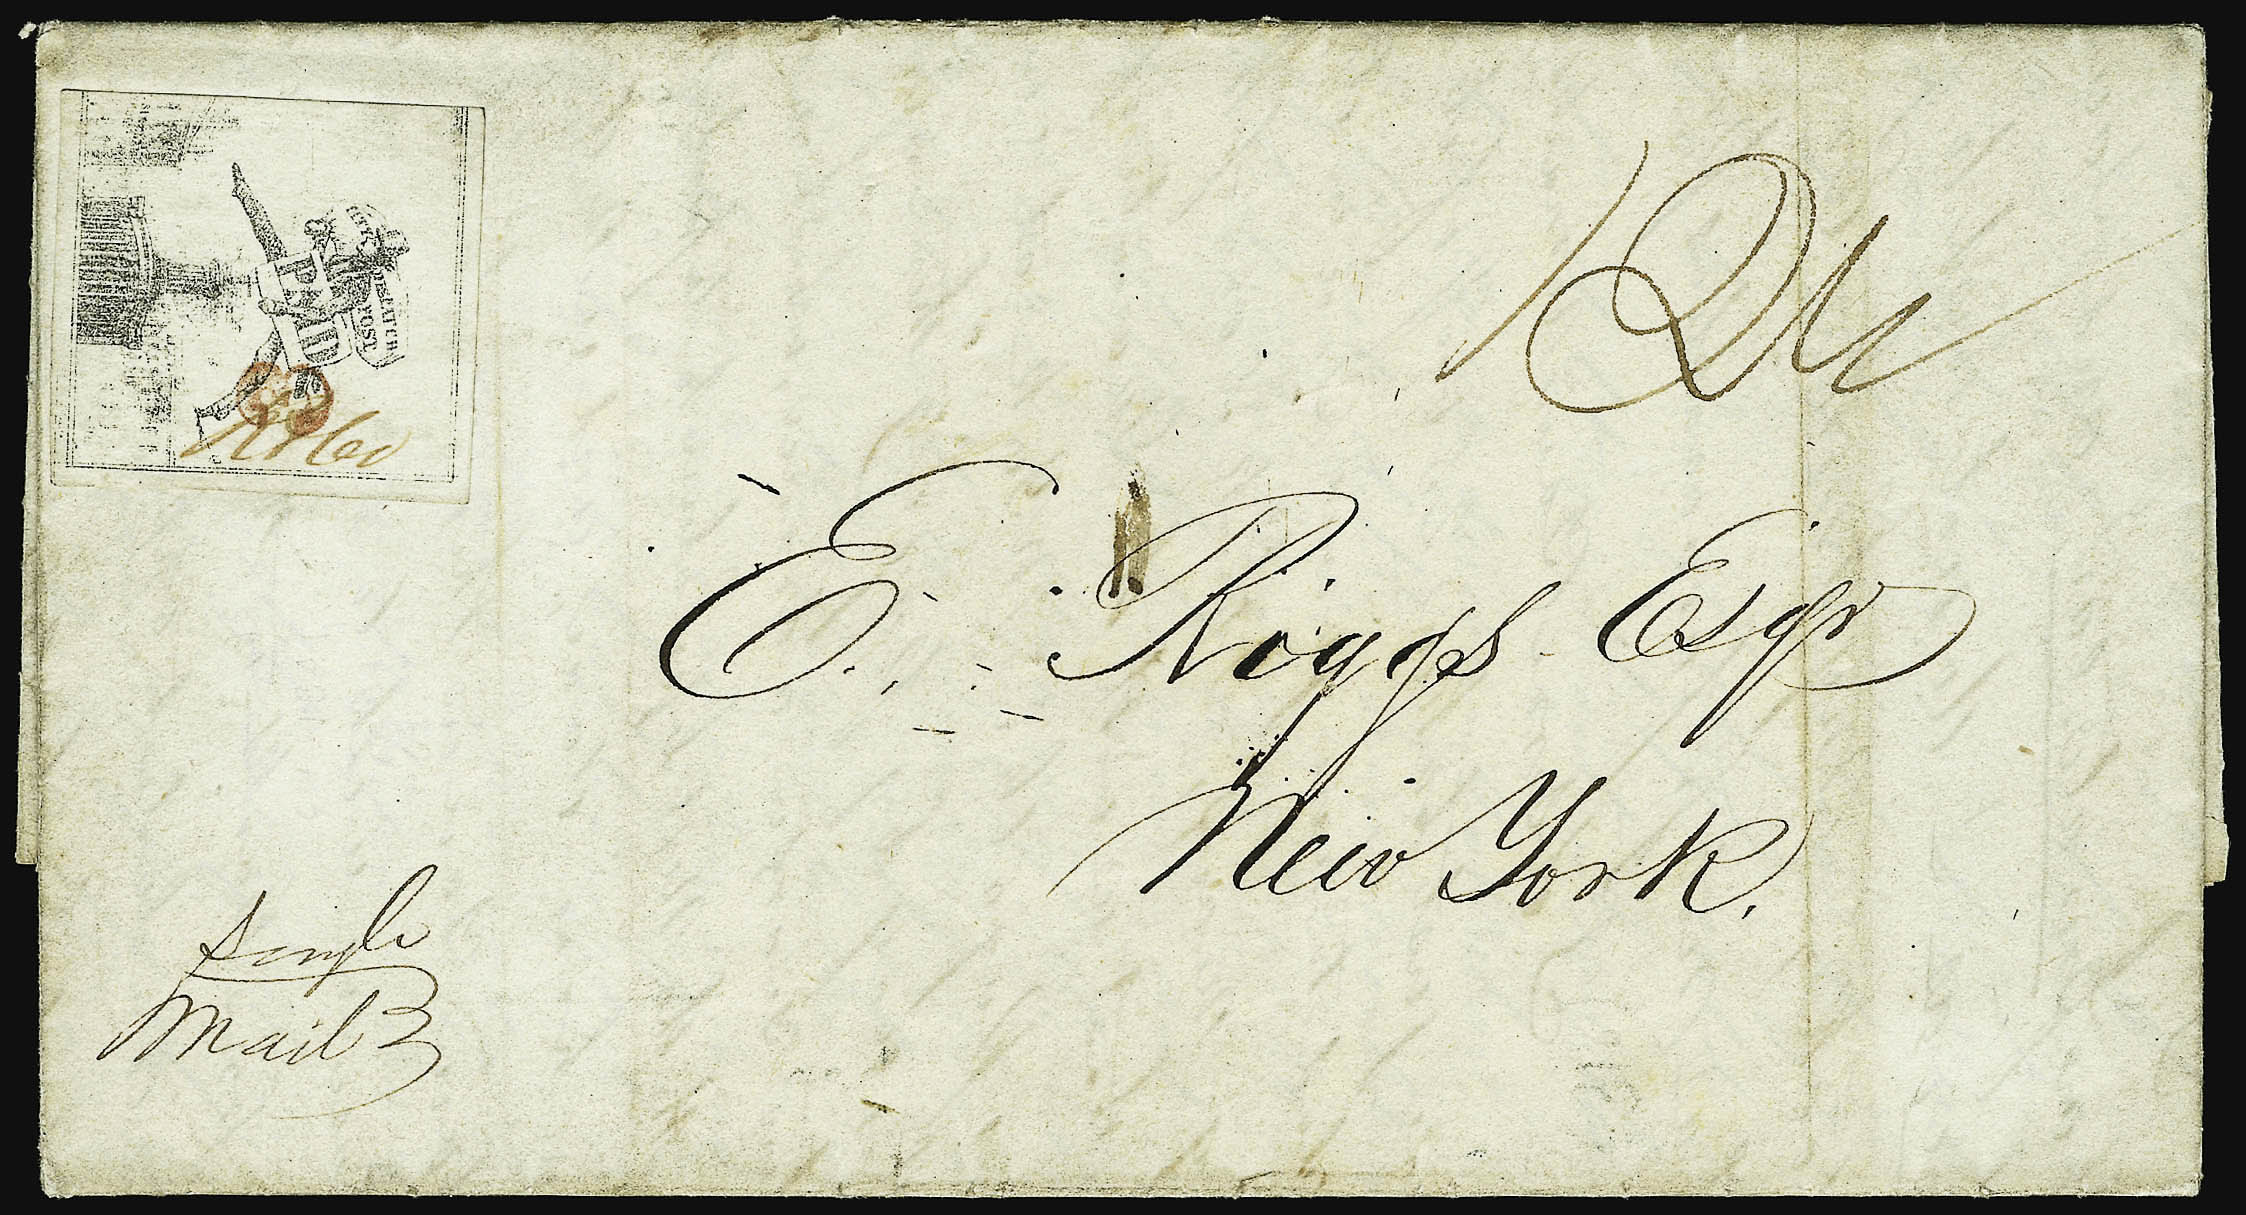 CITY
DESPATCH
POST
PAID
12½
E. Riggs Esqr
New York.
Single
Mail